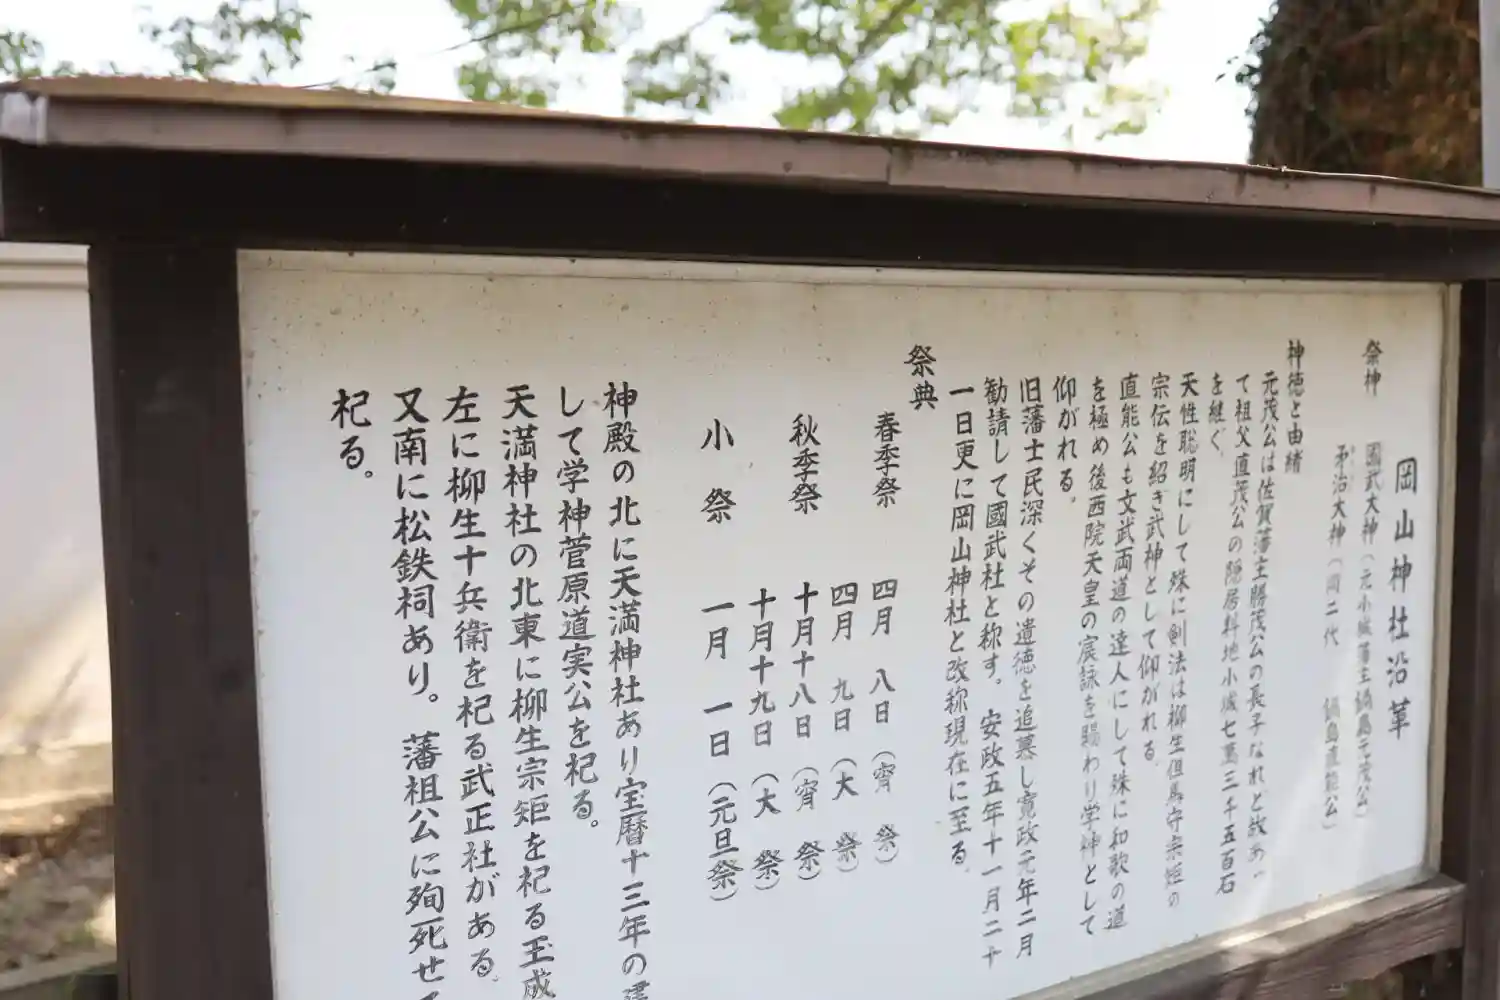 岡山神社沿革
祭神　國武大神（元小城藩主鍋島元茂公）
矛治大神（同二代　鍋島直能公）
神徳と由緒
元茂公は佐賀藩主勝茂公の長子なれど故あっ
て祖父直茂公の隠居料地小城七萬三千五百石
を継ぐ
天性聡明にして殊に剣法は柳生但馬守宗矩の
宗伝を紹ぎ武神として仰がれる
直能公も文武両道の達人にして殊に和歌の道
を極め後西院天皇の宸詠を賜わり学神として
仰がれる。
旧藩士民深くその遺徳を追慕し寛政元年二月
勧請して國武社と称す。安政五年十一月二十
一日更に岡山神社と改称現在に至る。
祭典
春季祭　四月　八日（宵　祭）
四月　九日（大　祭）
秋季祭　十月十八日（宵　祭）
十月十九日（大　祭）
小　祭　一月　一日（元旦祭）
神殿の北に天満神社あり宝暦十三年の建
して学神菅原道実公を杞る。
天満神社の北東に柳生宗矩を杞る玉成
左に柳生十兵衛を杞る武正社がある。
又南に松鉄祠あり。藩祖公に殉死せ
杞る。